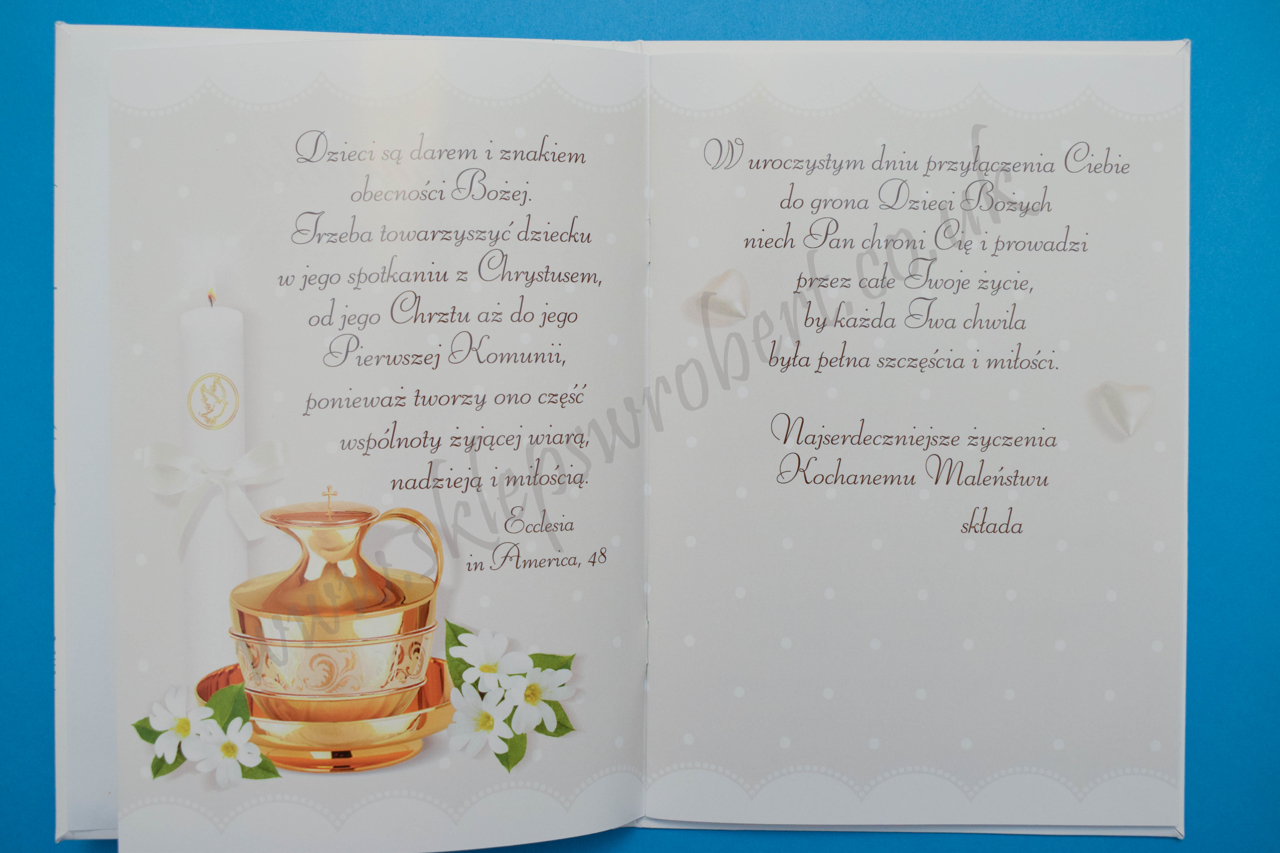 Dzieci są darem i znakiem
obecności Bożej.
Trzeba towarzyszyć dziecku
w jego spotkaniu z Chrystusem,
od jego Chrztu aż do jego
Pierwszej Komunii,
ponieważ tworzy ono część
wspólnoty żyjącej wiarą,
nadzieją i miłością.
Ecclesia
in America, 48
W uroczystym dniu przyłączenia Ciebie
do grona Dzieci Bożych
niech Pan chroni Cię i prowadzi
przez całe Twoje życie,
by każda Twa chwila
była pełna szczęścia i miłości.
Najserdeczniejsze życzenia
Kochanemu Maleństwu
składa
www.sklepswrobert.co.uk